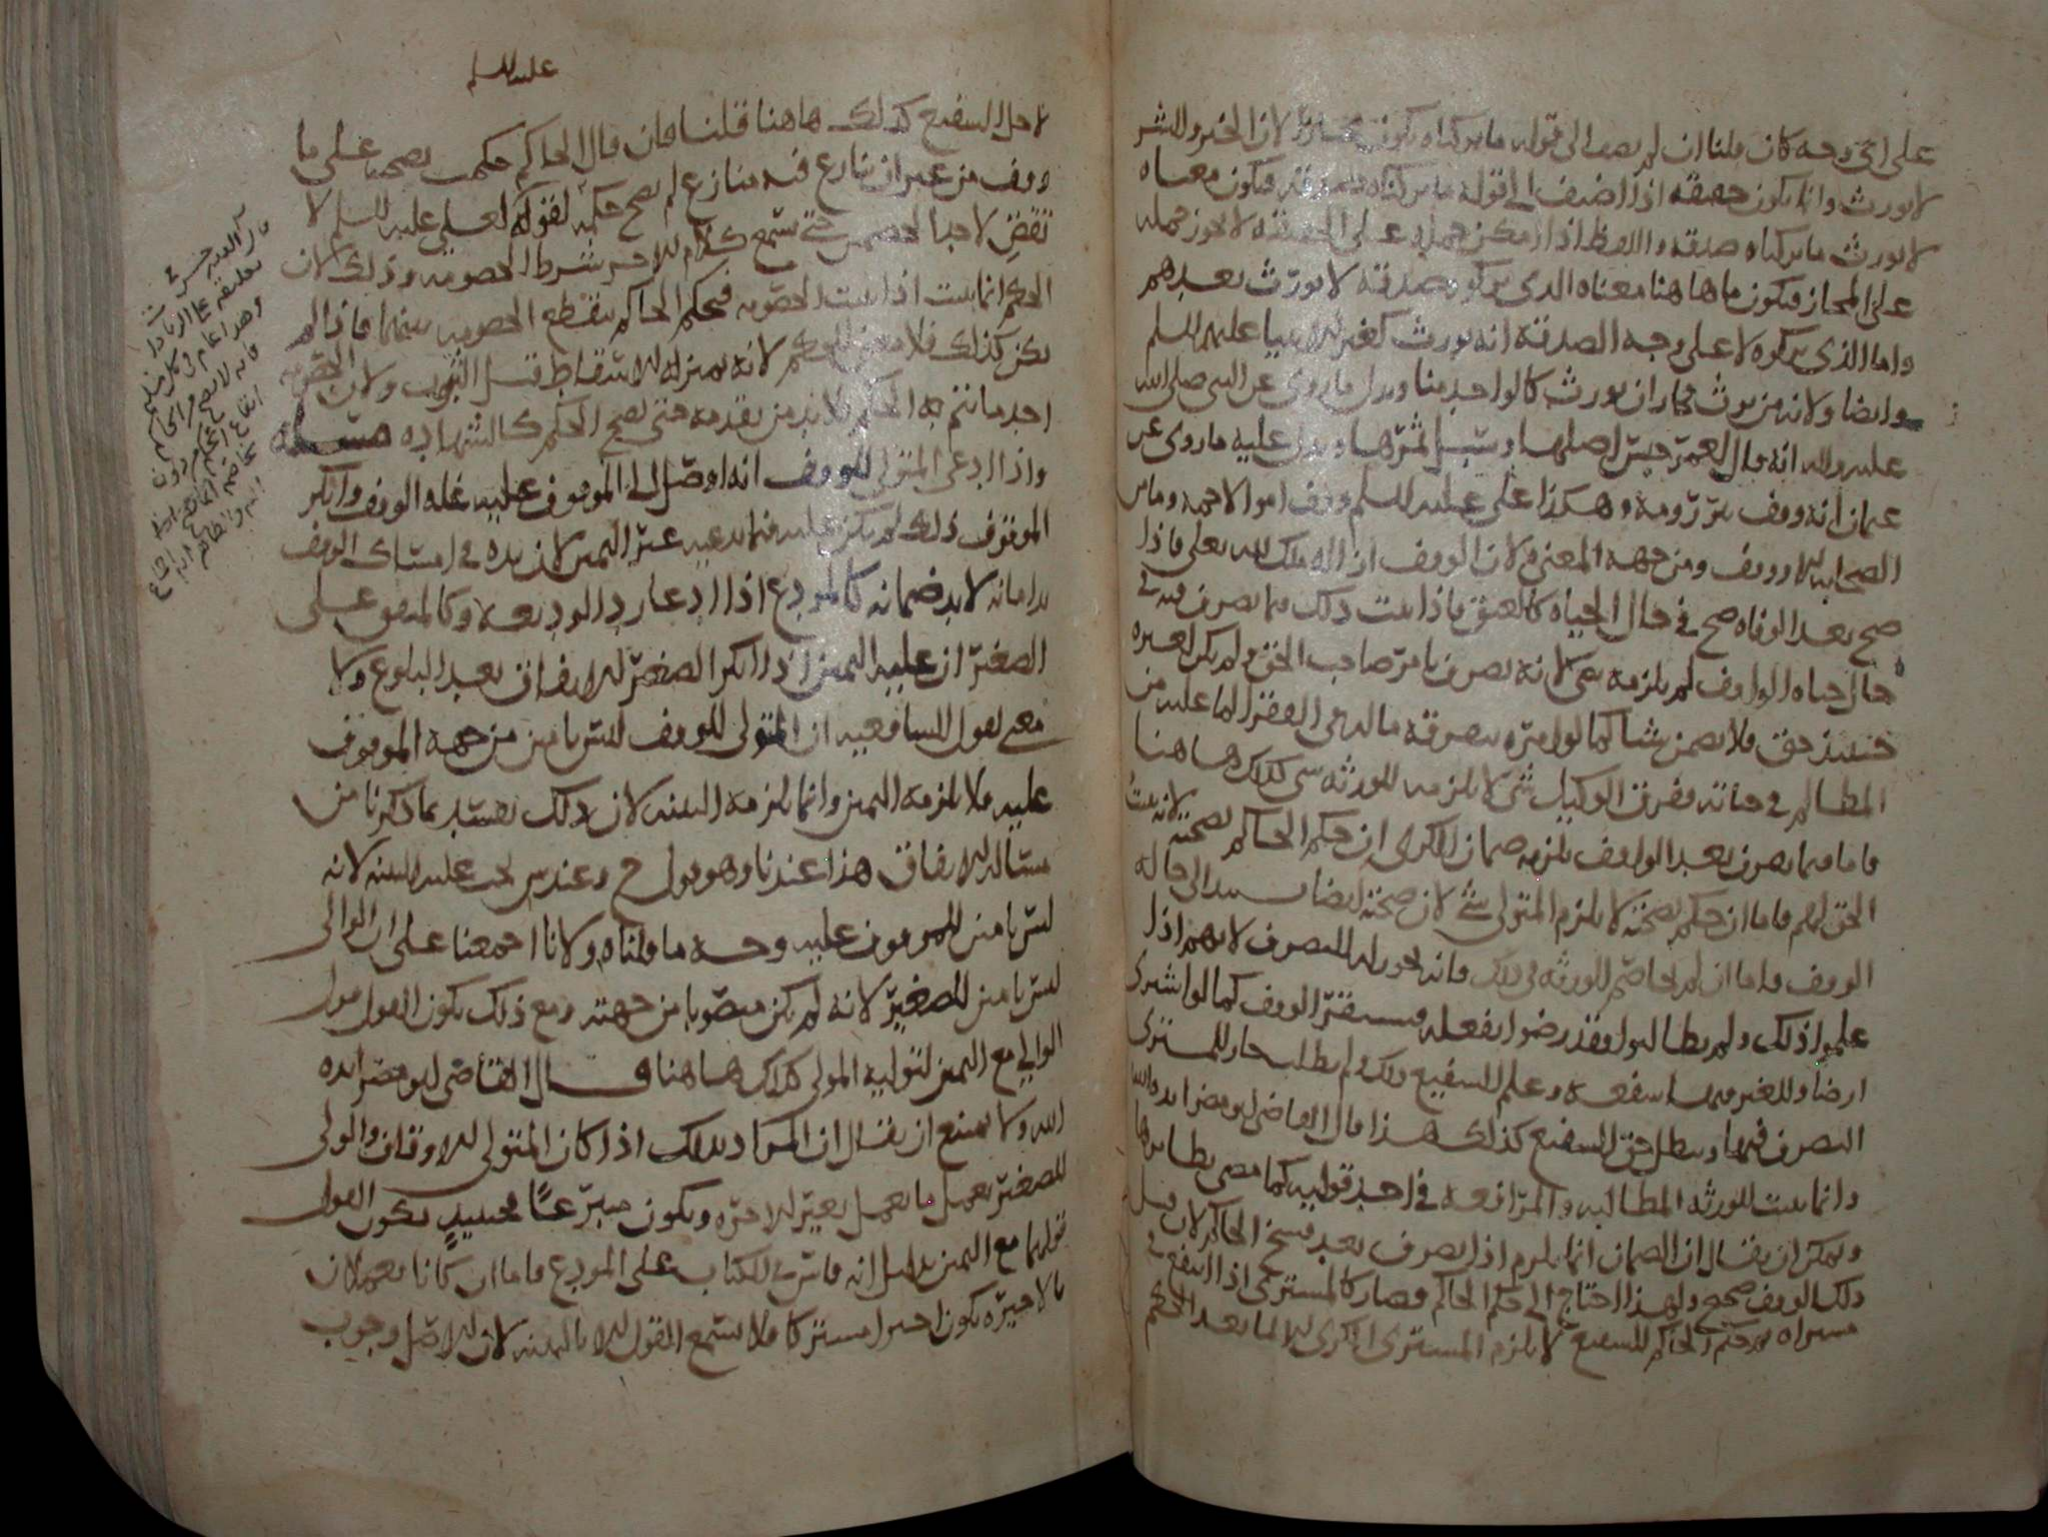 على اي وجه كان قلنا ان لم يضف الى قوله ما تركناه يكون مجازا لان الخبر والشر
لا يورث وانما يكون حقيقة اذا اضيف الى قوله ما تركناه صدقة فيكون معناه
لا يورث ما تركناه صدقة واللفظ اذا امكن حمله على الحقيقة لا يجوز حمله
على المجاز فيكون ما هاهنا معناه الذي تركوه صدقة لا يورث بعدهم
واما الذي تركوه لا على وجه الصدقة انه يورث كغير الانبيا عليهم السلم
وايضا ولانه من يرث فجاز ان يورث كالواحد منا ويدل ما روي عن النبي صلى الله
عليه واله انه قال لعمر حبس اصلها وسبل ثمرها ويدل عليه ما روي عن
عثمان انه وقف بئر رومة وهكذا علي عليه السلم وقف اموالا جمة وما من
الصحابة الا ووقف ومن جهة المعنى ولان الوقف ازالة ملك لله تعلى فاذا
صح بعد الوفاه صح في حال الحياه كالعتق فاذا ثبت ذلك فما تصرف فيه في
حال حياه الواقف لم يلزمه شي لانه تصرف بامر صاحب الحق ولم يكن لغيره
حينئذ حق فلا يضمن شيا كما لو امره بتفرقة ماله على الفقرا لما عليه من
المظالم في حياته ففرق الوكيل شي لا يلزمه للورثه شي كذلك هاهنا
فاما فيما تصرف بعد الواقف يلزمه ضمان الكرى ان حكم الحاكم بصحته لانه يثبت
الحق لهم فاما ان حكم بصحته لا يلزم المتولي شي لان صحته ايضا يستند الى حاله
الوقف واما ان لم يخاصم الورثه في ذلك فانه يجوز له التصرف لانهم اذا
علموا ذلك ولم يطالبوا فقد رضوا بفعله فيستقر الوقف كما لو اشترى
ارضا وللغير فيها شفعة وعلم الشفيع ذلك ولم يطلب جاز للمشتري
التصرف فيها ويبطل حق الشفيع كذلك هذا قال القاضي ابو مضر ايده الله
وانما يثبت للورثه المطالبه والمرافعه في احد قوليه كما مضى نظايرها
ويمكن ان يقال ان الضمان انما يلزم اذا تصرف بعد فسخ الحاكم لان قبل
ذلك الوقف صحيح ولهذا احتاج الى حكم الحاكم فصار كالمشتري اذا انتفع في
مشراه ثم حكم الحاكم للشفيع لا يلزم المشتري الكرى الا لما بعد الحكم
عليه السلم
لاجل الشفيع كذلك هاهنا قلنا فان قال الحاكم حكمت بصحته على ما
وقف من غير ان ينازع فيه منازع لم يصح حكمه لقوله لعلي عليه السلم لا
تقض لاحد الخصمين حتى تسمع كلام الاخر شرط الخصومه وذلك لان
الحكم انما يثبت اذا ثبت الخصومه فبحكم الحاكم تنقطع الخصومه بينهما فاذا لم
يكن كذلك فلا معنى للحكم لانه بمنزله الاسقاط قبل الثبوت ولان الخصومه
احد ما يتم به الحكم فلا بد من تقدمه حتى يصح الحكم كالشهاده مسله
واذا ادعى المتولي للوقف انه اوصل الى الموقوف عليه غله الوقف وانكر
الموقوف ذلك لم يكن عليه فيما يدعيه غير اليمين لان يده في امساك الوقف
يد امانه لا يد ضمانه كالمودع اذا ادعا رد الوديعه وكالمنفق على
الصغير ان عليه اليمين اذا انكر الصغير الانفاق بعد البلوغ ولا
معنى لقول الشافعيه ان المتولي للوقف ليس بامين من جهه الموقوف
عليه فلا يلزمه اليمين وانما يلزمه البينه لان ذلك يفسد بما ذكرنا من
مساله الانفاق هذا عندنا وهو قول ح وعند ش يجب عليه البينه لانه
ليس بامين للموقوف عليه وجه ما قلناه ولانا اجمعنا على ان الوالي
ليس بامين للصغير لانه لم يكن منصوبا من جهته ومع ذلك يكون القول قول
الوالي مع اليمين لتوليه المولى كذلك هاهنا قال القاضي ابو مضر ايده
الله ولا يمتنع ان يقال ان المراد بذلك اذا كان المتولي للاوقاف والولي
للصغير يعمل ما يعمل بغير الاجره ويكون متبرعا فحينيذ يكون القول
قولهما مع اليمين بدليل انه قاس في الكتاب على المودع فاما ان كانا يعملان
بالاجره يكون اجيرا مشتركا فلا يسمع القول الا بالبينه لان الاصل وجوب